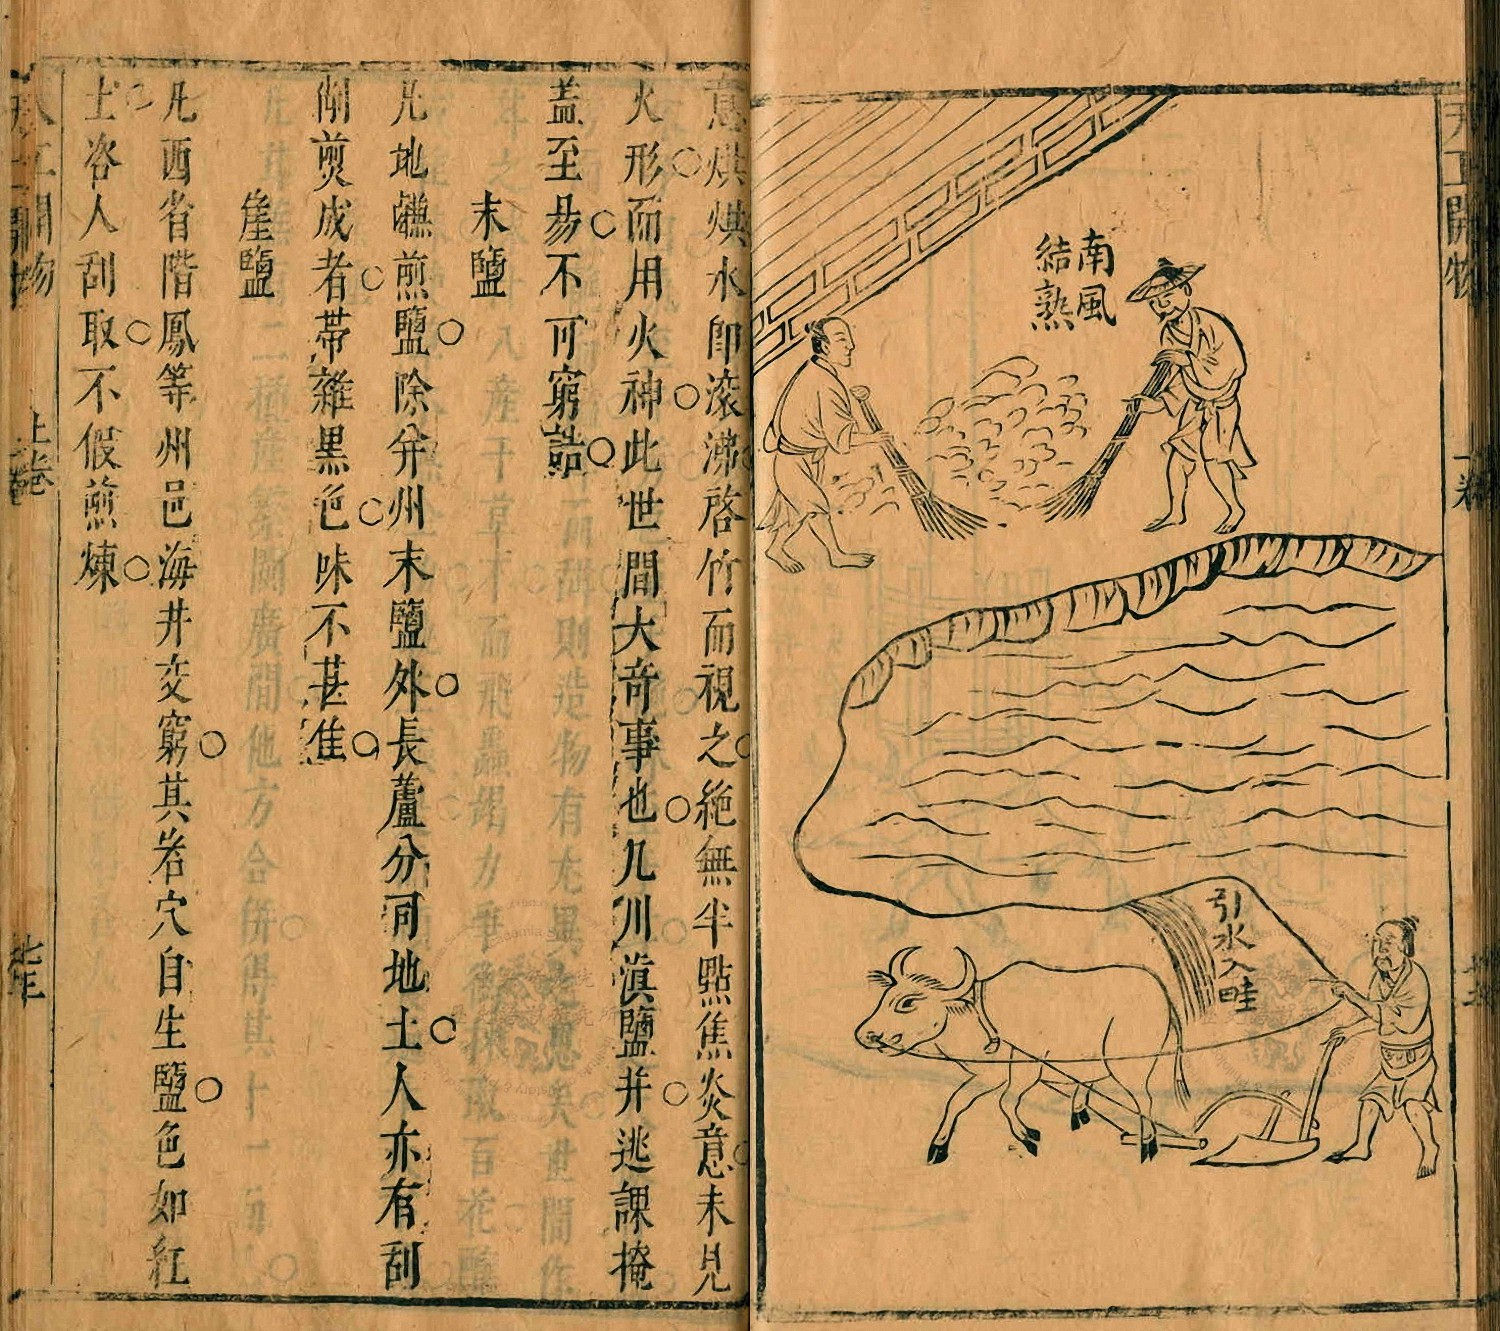 天工開物
上卷
南風
結熟
引水入畦
意烘烘水即滾沸啓竹而視之絶無半點焦炎意未見
火形而用火神此世間大奇事也凡川滇鹽井逃課掩
盖至易不可窮詰
末鹽
凡地鹻煎鹽除并州末鹽外長蘆分司地土人亦有刮
削煎成者帶雜黑色味不甚佳
崖鹽
凡西省階鳳等州邑海井交窮其岩穴自生鹽色如紅
土恣人刮取不假煎煉
天工開物
上卷